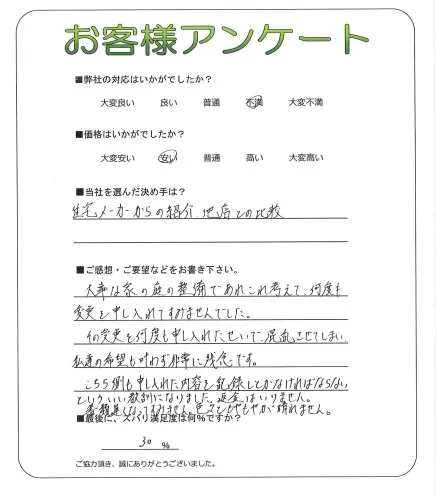 お客様アンケート
■弊社の対応はいかがでしたか？
大変良い 良い 普通 不満 大変不満
■価格はいかがでしたか？
大変安い 安い 普通 高い 大変高い
■当社を選んだ決め手は？
住宅メーカーからの紹介、他店との比較
■ご感想・ご要望などをお書き下さい。
大事な家の庭の整備であれこれ考えて、何度も
変更を申し入れてすみませんでした。
その変更を何度も申し入れたせいで、混乱させてしまい
私達の希望も叶わず非常に残念です。
こちら側も申し入れた内容を記録しとかなければならない
といういい教訓になりました。返金はいりません。
すみません。色々ともやもやが晴れません。
■最後に、ズバリ満足度は何％ですか？
30 ％
ご協力頂き、誠にありがとうございました。